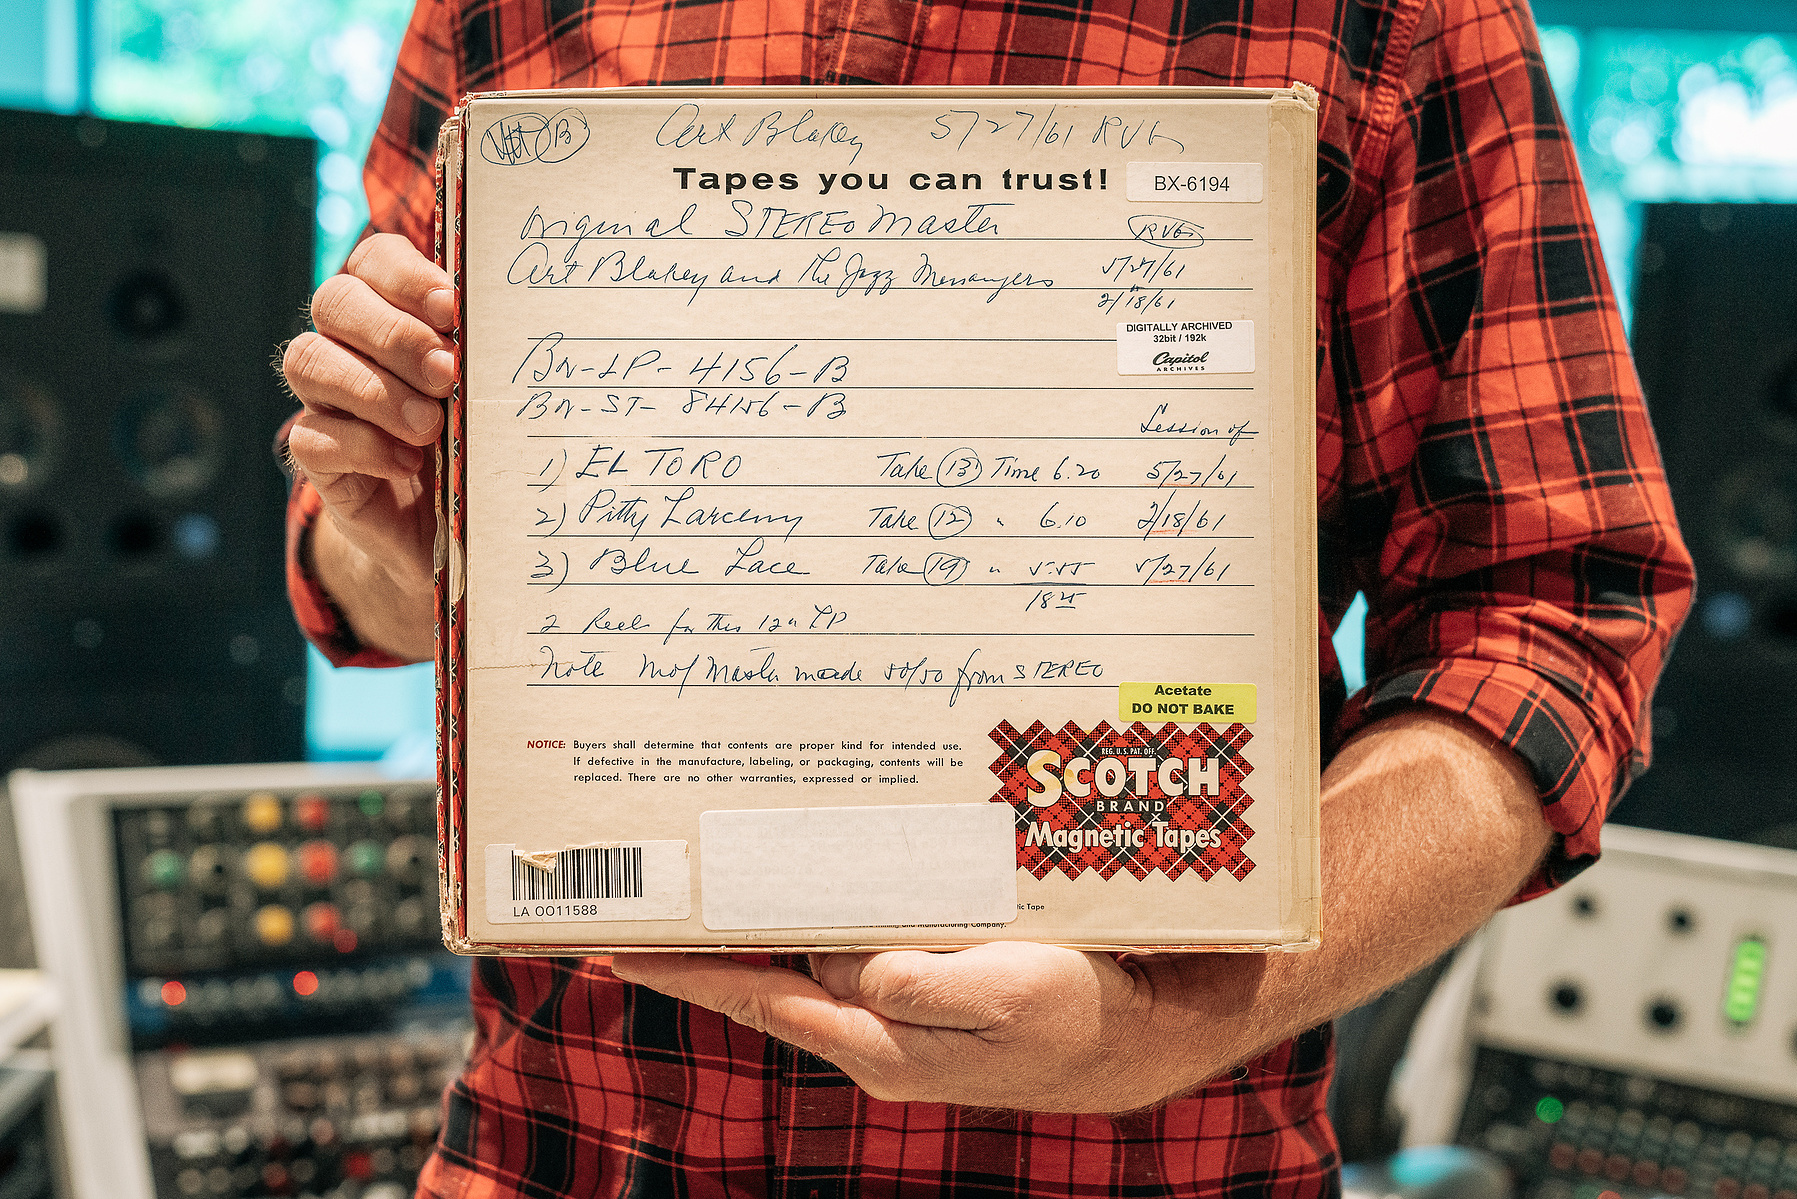 B Art Blakey 5/27/61 RVG
Tapes you can trust!
BX-6194
Original STEREO Master RVG
Art Blakey and The Jazz Messengers 5/27/61
2/18/61
DIGITALLY ARCHIVED
32bit / 192k
Capitol
ARCHIVES
BN-LP-4156-B
BN-ST-84156-B
Session of
1) EL TORO Take 13 Time 6.20 5/27/61
2) Pitty Larceny Take 12 " 6.10 2/18/61
3) Blue Lace Take 19 " 5:55 5/27/61
18 25
2 Reels for this 12" LP
Note Mof Master made 50/50 from STEREO
Acetate
DO NOT BAKE
NOTICE: Buyers shall determine that contents are proper kind for intended use.
If defective in the manufacture, labeling, or packaging, contents will be
replaced. There are no other warranties, expressed or implied.
REG. U.S. PAT. OFF.
SCOTCH
BRAND
Magnetic Tapes
LA 0011588
Tape
Mining and Manufacturing Company.